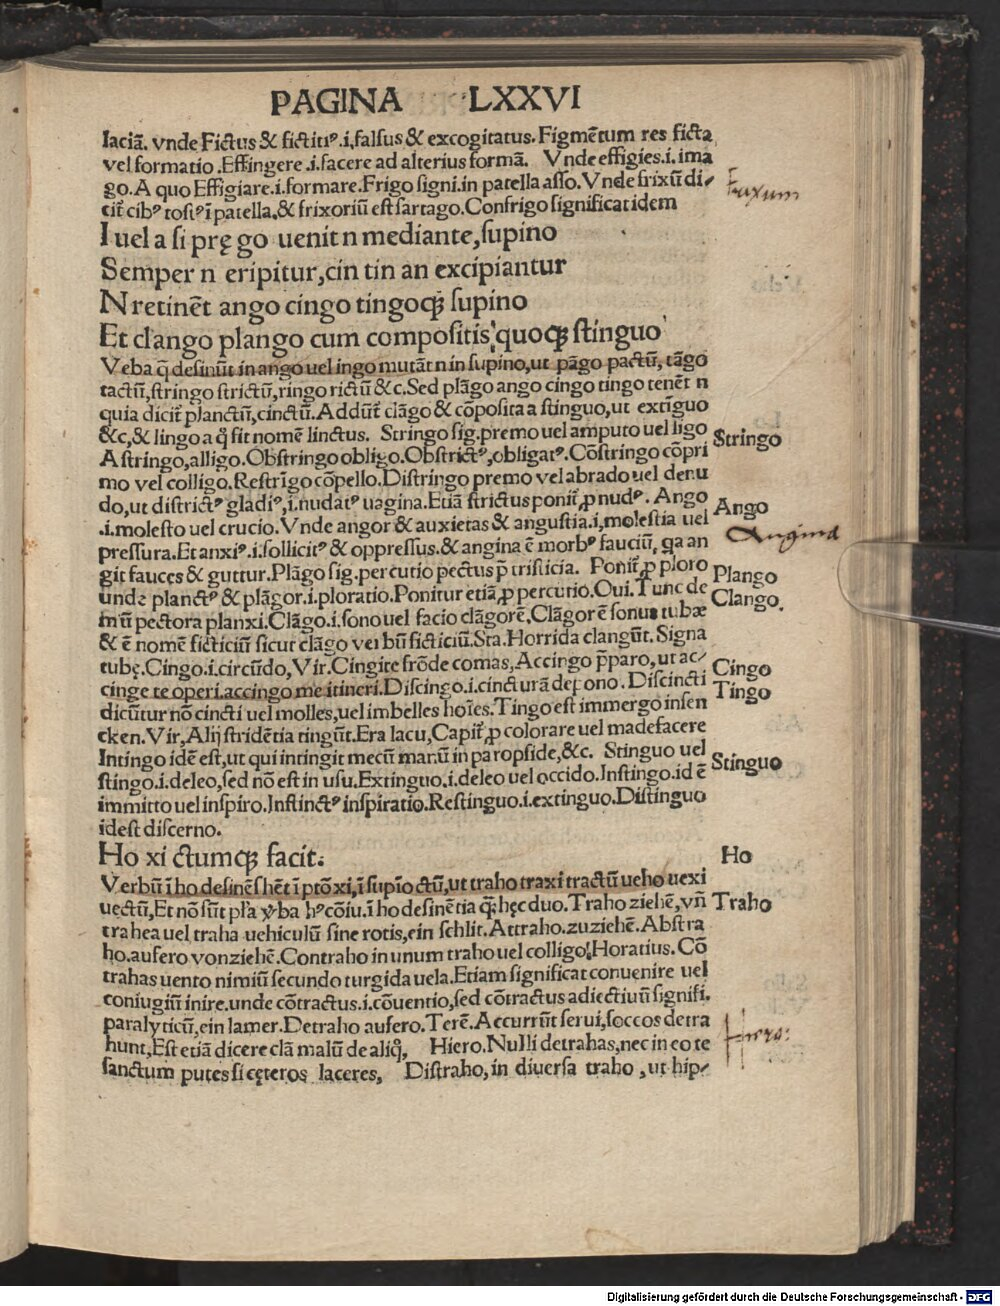 PAGINA LXXVI
laciā. vnde Fictus & fictitiꝰ.i,falsus & excogitatus. Figmētum res ficta
vel formatio .Effingere .i.facere ad alterius formā. Vnde effigies.i. ima
go. A quo Effigiare.i.formare. Frigo signi.in patella asso. Vnde frixū di⸗
cit̄ cibꝰ tostꝰ ī patella.& frixoriū est sartago. Confrigo significat idem
I uel a si prę go uenit n mediante, supino
Semper n eripitur, cin tin an excipiantur
N retinēt ango cingo tingoqꝫ supino
Et clango plango cum compositis, quoqꝫ stinguo
Veba q̄ desinūt in ango uel ingo mutāt n in supino, ut pāgo pactū, tāgo
tactū, stringo strictū, ringo rictū &c. Sed plāgo ango cingo tingo tenēt n
quia dicit̄ planctū, cinctū. Addūt̄ clāgo & cōposita a stinguo, ut extīguo
&c, & lingo a q̊ fit nomē linctus. Stringo sig. premo uel amputo uel ligo
Astringo, alligo. Obstringo obligo. Obstrictꝰ, obligatꝰ. Cōstringo cōpri
mo vel colligo. Restrīgo cōpello. Distringo premo vel abrado uel denu
do, ut districtꝰ gladiꝰ, i. nudatꝰ uagina. Etiā strictus ponit̄ ꝓ nudꝰ. Ango
.i. molesto uel crucio. Vnde angor & auxietas & angustia.i, molestia uel
pressura. Et anxiꝰ.i. sollicitꝰ & oppressus. & angina ē morbꝰ fauciū, ga an
git fauces & guttur. Plāgo sig. percutio pectus p̄ tristicia. Ponit̄ ꝓ ploro
unde planctꝰ & plāgor.i. ploratio. Ponitur etiā ꝓ percutio. Oui. Tunc de
mū pectora planxi. Clāgo.i. sono uel facio clāgorē. Clāgor ē sonus tubæ
& ē nomē ficticiū sicut clāgo verbū ficticiū. Sta. Horrida clangūt. Signa
tubę. Cingo.i. circūdo, Vir. Cingite frōde comas, Accingo p̄paro, ut ac⸗
cinge te operi. accingo me itineri. Discingo.i. cincturā depono. Discincti
dicūtur nō cincti uel molles, uel imbelles hoīes. Tingo est immergo insen
cken. Vir, Alij stridētia tingūt. Era lacu, Capit̄ ꝓ colorare uel madefacere
Intingo idē est, ut qui intingit mecū manū in paropside, &c. Stinguo uel
stingo.i. deleo, sed nō est in usu. Extinguo.i. deleo uel occido. Instingo. id ē
immitto uel inspiro. Instinctꝰ inspiratio. Restinguo.i. extinguo. Distinguo
idest discerno.
Ho xi ctumqꝫ facit.
Verbū ī ho desinēs hēt ī p̄tō xi, ī supīo ctū, ut traho traxi tractū ueho uexi
uectū, Et nō sūt pl̄a v̓ba hꝰ cōiu. ī ho desinētia q̄ꝫ hęc duo. Traho ziehē, vn̄
trahea uel traha uehiculū sine rotis, ein schlit. Attraho. zuziehē. Abstra
ho. aufero vonziehē. Contraho in unum traho uel colligo. Horatius. Cō
trahas uento nimiū secundo turgida uela. Etiam significat conuenire uel
coniugiū inire. unde cōtractus.i. cōuentio, sed cōtractus adiectiuū signifi.
paralyticū, ein lamer. Detraho aufero. Terē. Accurrūt serui, soccos detra
hunt, Est etiā dicere clā malū de aliq̊, Hiero. Nulli detrahas, nec in eo te
sanctum putes si cęteros laceres, Distraho, in diuersa traho, ut hip⸗
Fuxum
Stringo
Ango
Angina
Plango
Clango.
Cingo
Tingo
Stinguo
Ho
Traho
Hiero:
Digitalisierung gefördert durch die Deutsche Forschungsgemeinschaft - DFG